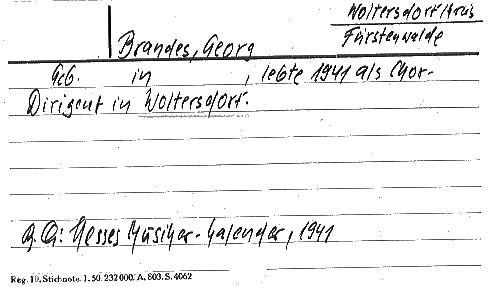 Woltersdorf/Krus
Fürstenwalde
Brandes, Georg
Geb. in , lebte 1941 als Chor-
Dirigent in Woltersdorf.
Hesses Musiker-Kalender, 1941
Reg. 10. Stichnote. 1. 50. 232000. A. 803. S. 4062